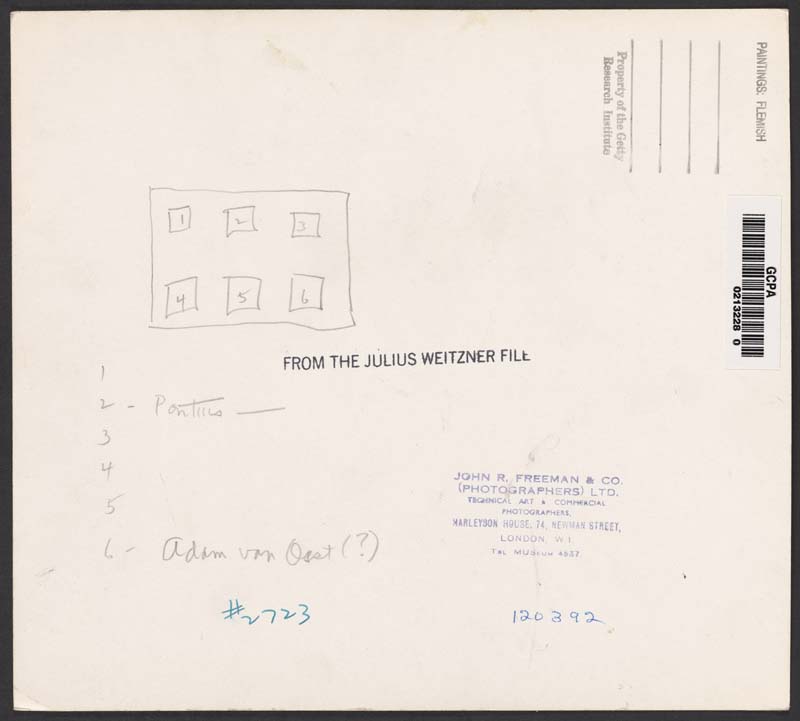 PAINTINGS: FLEMISH
Property of the Getty
Research Institute
GCPA
0213228 0
1 2 3
4 5 6
FROM THE JULIUS WEITZNER FILE
1
2 - Pontius —
3
4
5
6 - Adam van Oost (?)
JOHN R. FREEMAN & CO.
(PHOTOGRAPHERS) LTD.
TECHNICAL ART & COMMERCIAL
PHOTOGRAPHERS,
MARLEYSON HOUSE, 74, NEWMAN STREET,
LONDON, W.1.
TEL MUSEUM 4537
#2723
120392